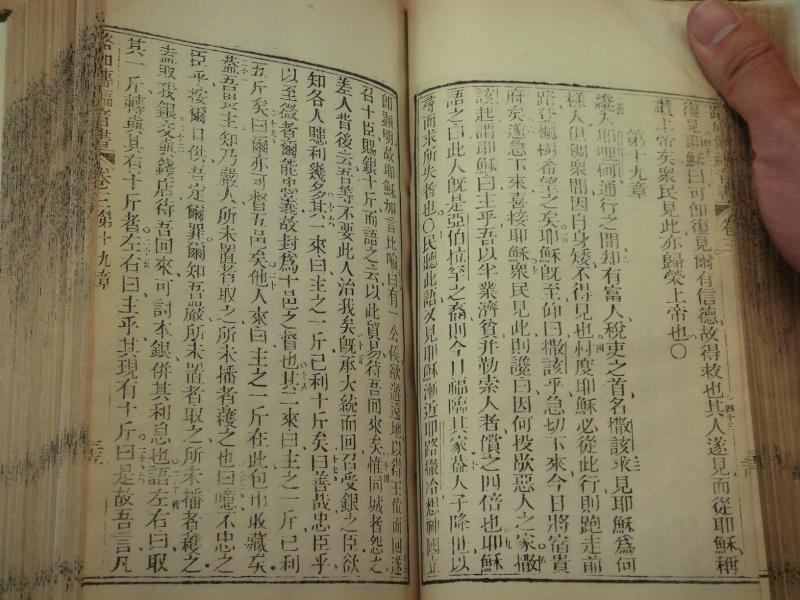 復見耶穌曰可卽復見爾有信德故得救也其人遂見而從耶穌稱
讚上帝矣衆民見此亦歸榮上帝也〇
第十九章
纔入耶哩柯通行之間却有富人稅吏之首名撒該求見耶穌爲何
樣人但稠衆間因自身矮不得見也忖度耶穌必從此行則跑走前
路登樹希望之矣耶穌旣至仰曰撒該乎急切下來今日將宿貴
府矣遂急下來喜接耶穌衆民見此則讒曰因何投歇惡人之家撒
該起謂耶穌曰主乎吾以半業濟貧幷勒索人者償之四倍也耶穌
語之曰此人旣是亞伯拉罕之裔則今日福臨其家蓋人子降世以
尋而求所失者也〇民聽此語又見耶穌漸近耶路撒冷想神國
卽顯明故耶穌加言此喻曰有一公侯欲遊遠地以得王位而回遂
召十臣賜銀十斤而語之云以此貿易待吾回來矣惟同城者怨之
差人背後云吾等不要此人治我矣旣承大統而回召受銀之臣欲
知各人賺利幾多其一來曰主之一斤已利十斤矣曰善哉忠臣乎
以至微者爾能忠義故封爲十邑之督也其二來曰主之一斤已利
五斤矣曰爾亦可督五邑矣他人來曰主之一斤在此包巾收藏矣
蓋吾畏主知乃嚴人所未置者取之所未播者穫之也曰噫不忠之
臣乎按爾口供吾定爾罪爾知吾嚴所未置者取之所未播者穫之
盍取我銀交與錢店待吾回來可討本銀併其利息也語左右曰取
其一斤轉與其有十斤者左右曰主乎其現有十斤曰是故吾言凡
路加傳福音書 卷三 第十九章